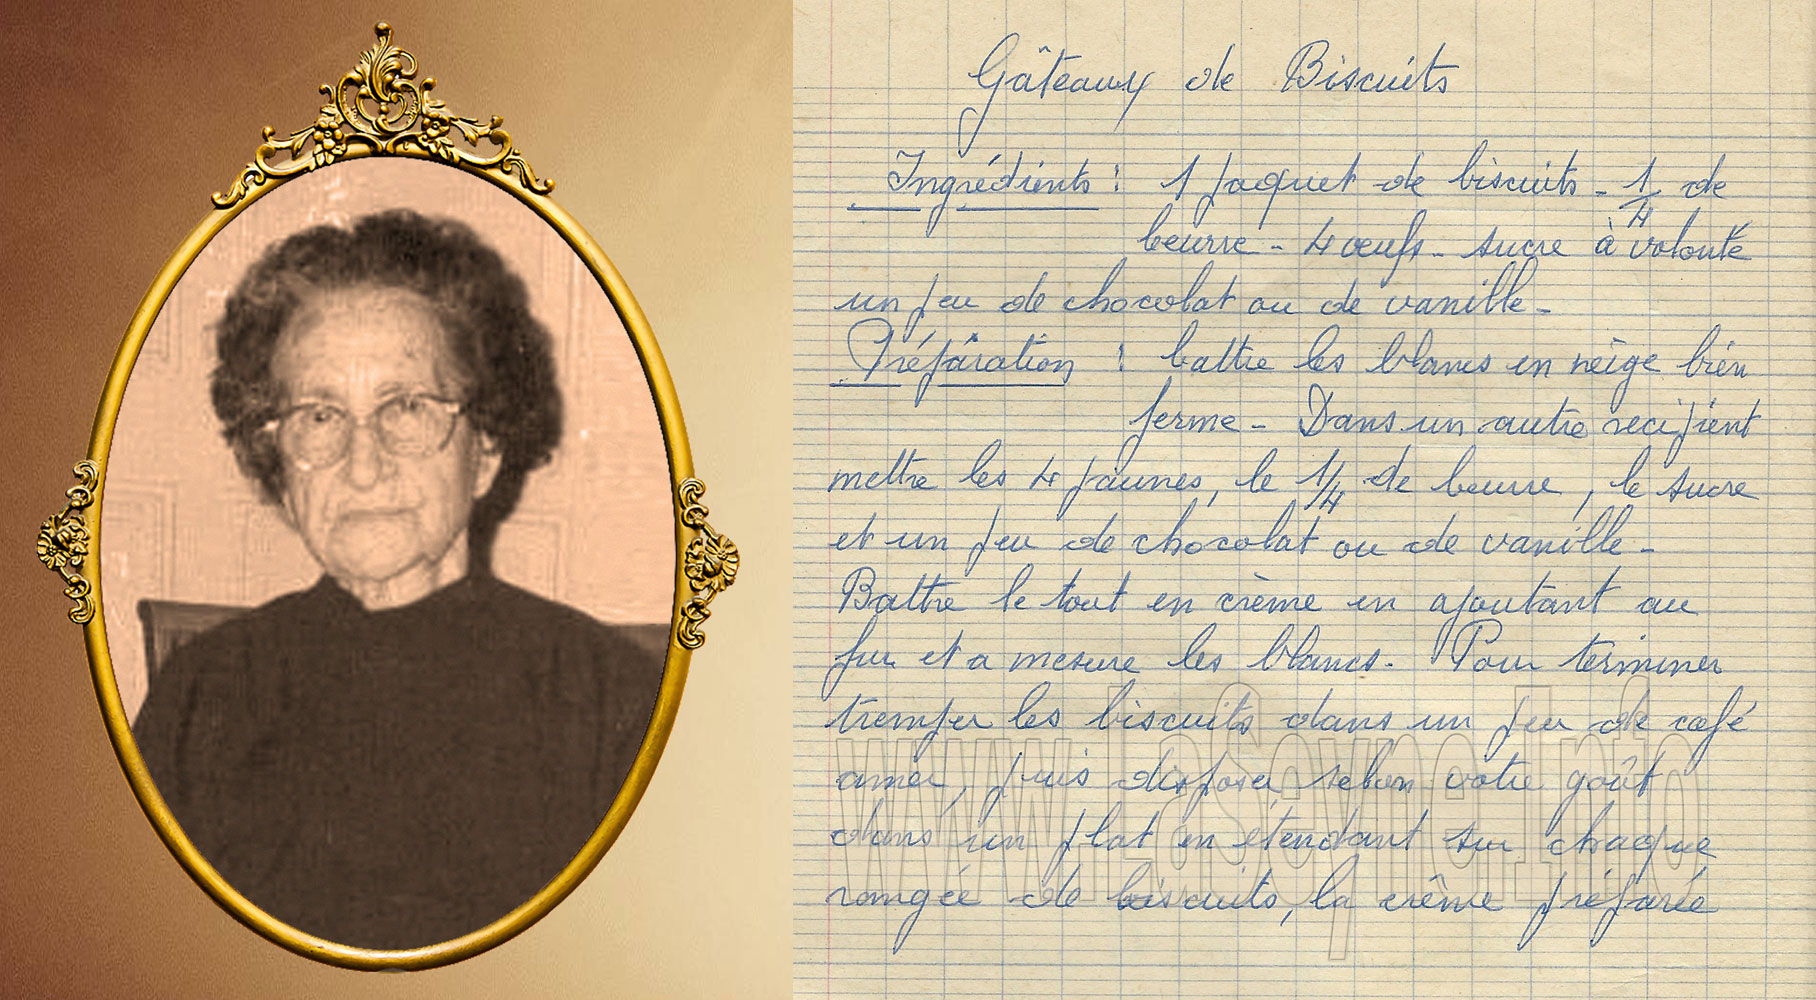 Gâteaux de Biscuits
Ingrédients : 1 paquet de biscuits - 1/4 de
beurre - 4 œufs - sucre à volonté
un peu de chocolat ou de vanille -
Préparation : battre les blancs en neige bien
ferme - Dans un autre recipient
mettre les 4 jaunes, le 1/4 de beurre, le sucre
et un peu de chocolat ou de vanille -
Battre le tout en crème en ajoutant au
fur et a mesure les blancs - Pour terminer
tremper les biscuits dans un peu de café
amer, puis disposer selon votre goût
dans un plat en étendant sur chaque
rangée de biscuits, la crême préparée
www.LaSeyne.Info